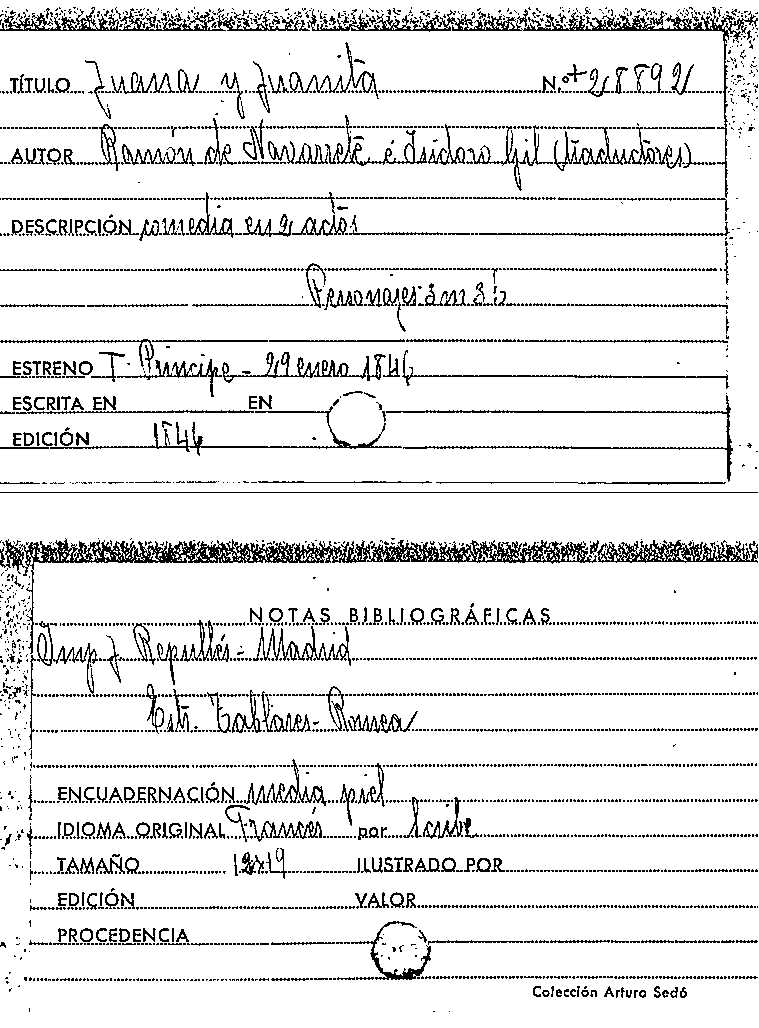 TÍTULO Juana y Juanita N.º + 28892
AUTOR Ramón de Navarrete é Isidoro Gil (traductores)
DESCRIPCIÓN comedia en 2 actos
Personajes 3 m 3 h
ESTRENO T. Principe - 29 enero 1846
ESCRITA EN EN
EDICIÓN 1846
NOTAS BIBLIOGRÁFICAS
Imp J. Repullés - Madrid
Estr. Tablares - Romea
ENCUADERNACIÓN media piel
IDIOMA ORIGINAL Francés por Scribe
TAMAÑO 12x19 ILUSTRADO POR
EDICIÓN VALOR
PROCEDENCIA
Colección Arturo Sedó